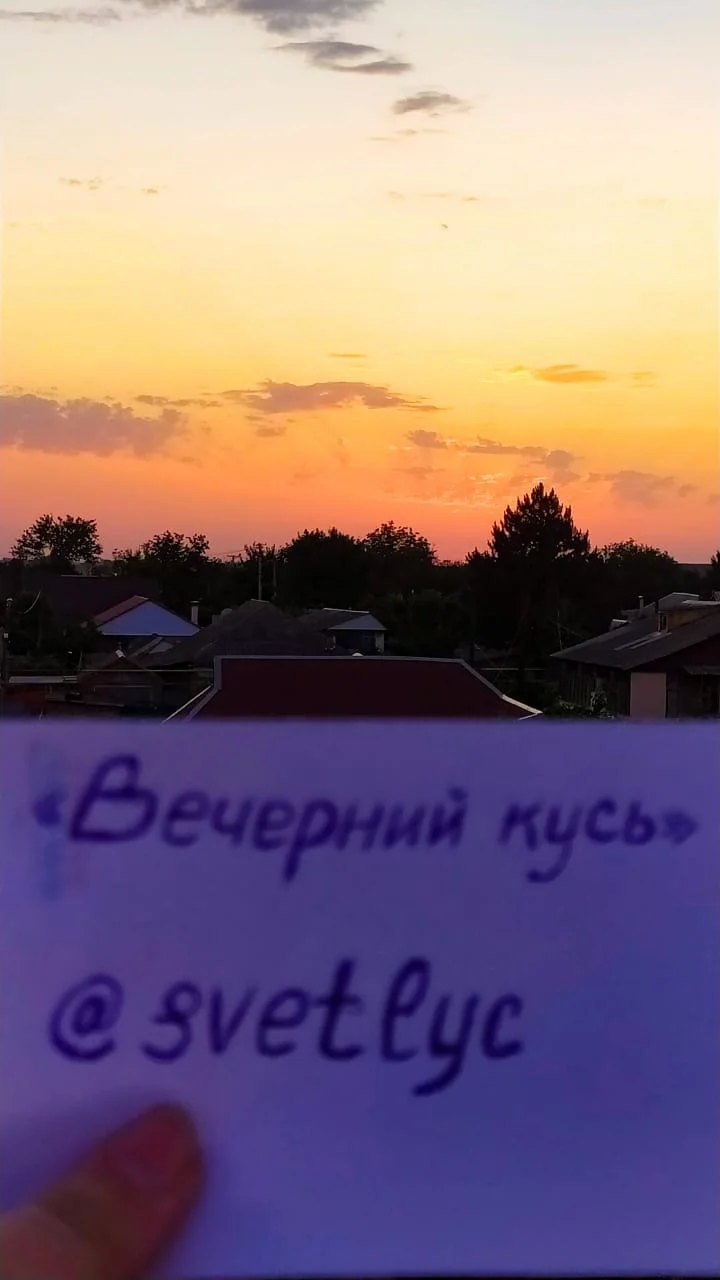 «Вечерний кусь»
@svetlyc